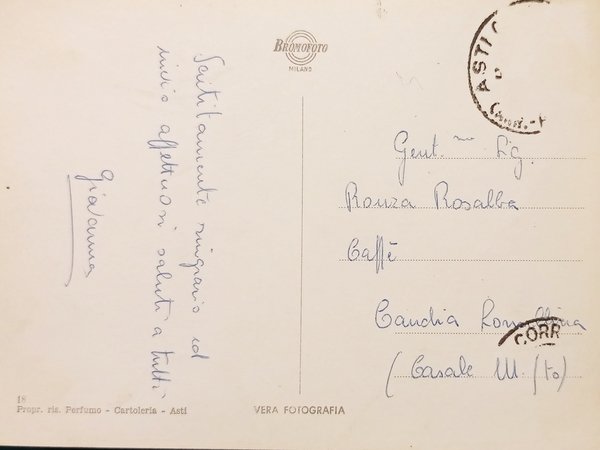 BROMOFOTO
MILANO
ASTI
Sentitamente ringrazio ed
invio affettuosi saluti a tutti
Giovanna
Gent.ma Sig.
Ronza Rosalba
Caffè
Candia Lomellina
CORR
(Casale M. (to)
18
Propr. ris. Perfumo - Cartoleria - Asti
VERA FOTOGRAFIA